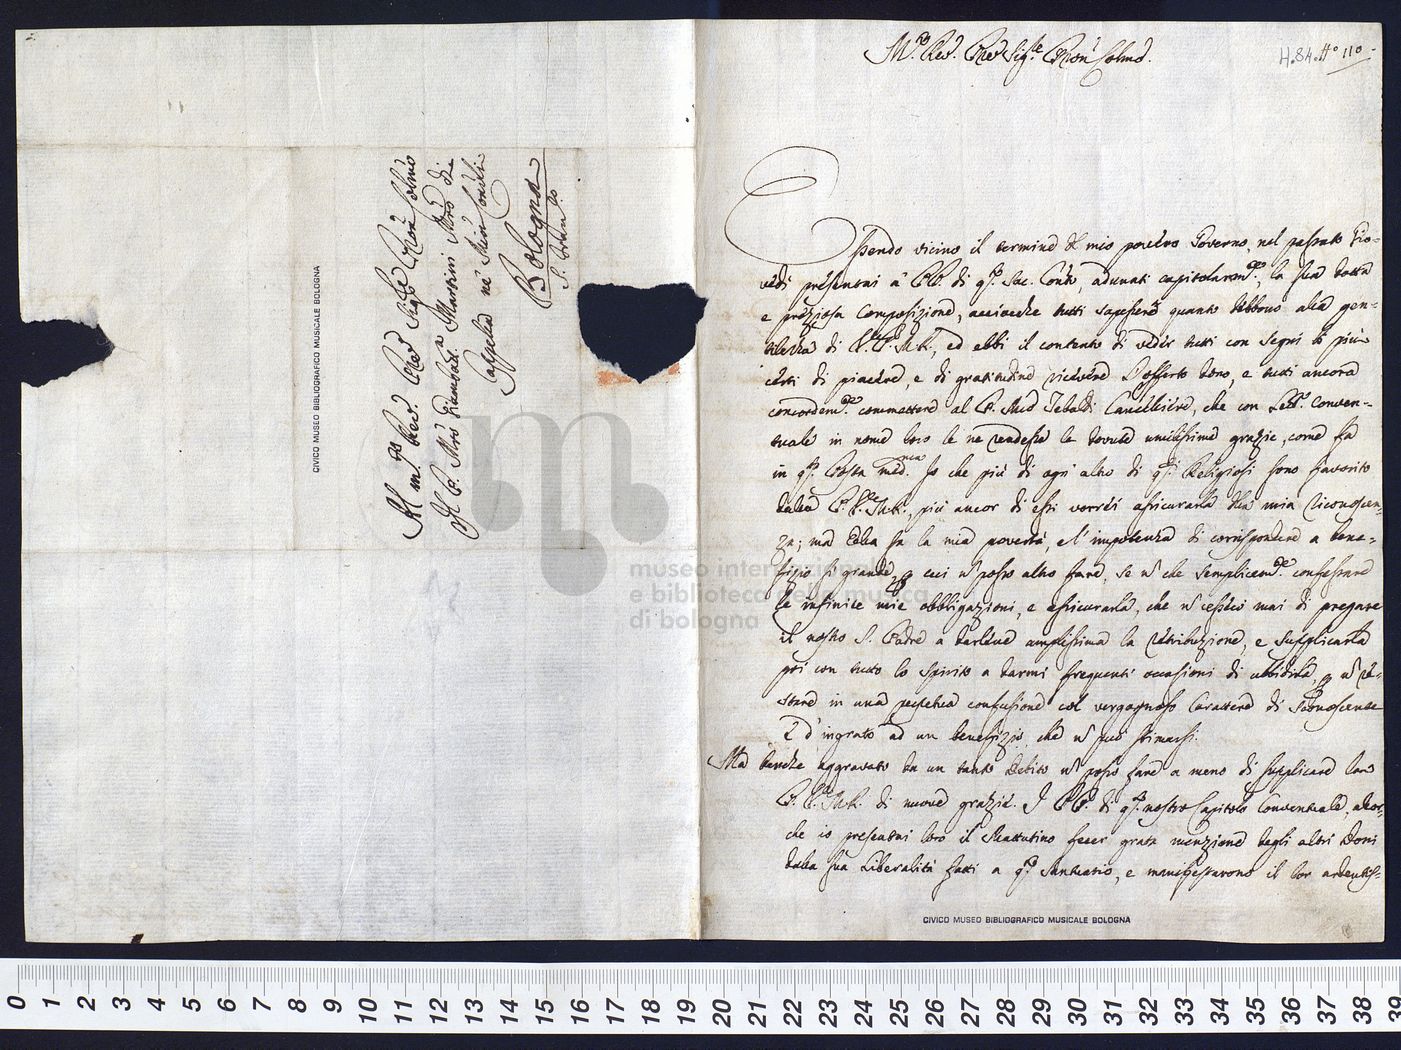 Al M.to Rev. Pre Sig.re Pron Colmo
Il P. Mro Giambatta Martini Mro di
Cappella ne' Min Conv.li
Bologna
S. Fran.co
CIVICO MUSEO BIBLIOGRAFICO MUSICALE BOLOGNA
H.84. No 110
M.o Rev. Pre Sig.re Pron Colmo.
Essendo vicino il termine del mio povero Governo, nel passato Gio-
vedì presentai a' PP. di q.o Sac. Con.to, adunati capitolarm.e, la sua dotta
e preziosa Composizione, acciocche tutti sapessero quanto debbono alla gen-
tilezza di V. P. M. R., ed ebbi il contento di veder tutti con segni i più
certi di piacere, e di gratitudine ricevere l'offerto dono, e tutti ancora
concordem.e commettere al P. Tebaldi Cancelliere, che con Lett.a Conven-
tuale in nome loro le ne rendesse le dovute umilissime grazie, come fa
in q.a Posta med.ma Io che più di ogni altro di q.i Religiosi sono favorito
dalla P. V. M. R., più ancor di essi vorrei assicurarla della mia riconoscen-
za; ma Ella sa la mia povertà, e l'impotenza di corrispondere a bene-
fizio sì grande, p cui n posso altro fare, se n che semplicem.e confessare
le infinite mie obbligazioni, e assicurarla, che n cesserò mai di pregare
il nostro S. Padre a darlene amplissima la retribuzione, e supplicarla
poi con tutto lo spirito a darmi frequenti occasioni di ubbidirla, p n re-
stare in una perpetua confusione col vergognoso carattere di sconoscente
e d'ingrato ad un benefizio, che n può stimarsi.
Ma benche aggravato da un tanto Debito n posso fare a meno di supplicare la
P. V. M. R. di nuove grazie. I PP. di q.o nostro Capitolo Conventuale, allor-
che io presentai loro il Mattutino fecer grata menzione degli altri Doni
dalla sua Liberalità fatti a q.o Santuario, e manifestarono il lor ardentiss-
CIVICO MUSEO BIBLIOGRAFICO MUSICALE BOLOGNA
museo internazionale
e biblioteca della musica
di bologna
0 1 2 3 4 5 6 7 8 9 10 11 12 13 14 15 16 17 18 19 20 21 22 23 24 25 26 27 28 29 30 31 32 33 34 35 36 37 38 39